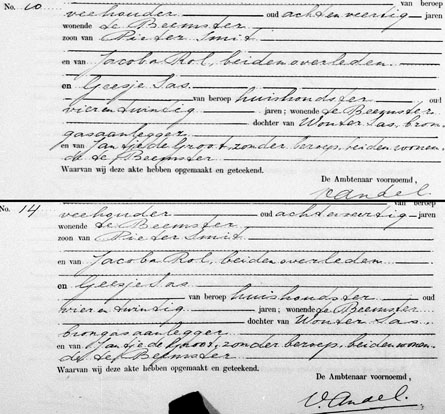 No. 10 van beroep
veehouder oud achtenveertig jaren
wonende te Beemster
zoon van Pieter Smit
en van Jacoba Rol, beiden overleden
en Geesje Sas
van beroep huishoudster oud
vierentwintig jaren; wonende te Beemster
dochter van Wouter Sas, bron-
gasaanlegger
en van Jantje de Groot, zonder beroep, beiden wonen-
de te Beemster
Waarvan wij deze akte hebben opgemaakt en geteekend.
De Ambtenaar voornoemd,
V. Andel.
No. 14 van beroep
veehouder oud achtenveertig jaren
wonende te Beemster
zoon van Pieter Smit
en van Jacoba Rol, beiden overleden
en Geesje Sas
van beroep huishoudster oud
vierentwintig jaren; wonende te Beemster
dochter van Wouter Sas,
brongasaanlegger
en van Jantje de Groot, zonder beroep, beiden wonen-
de te Beemster
Waarvan wij deze akte hebben opgemaakt en geteekend.
De Ambtenaar voornoemd,
V. Andel.